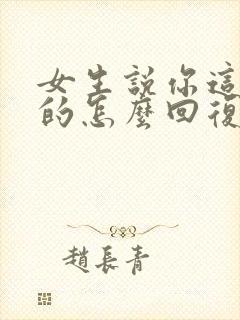 女生說你這
的怎麼回復
趙長青